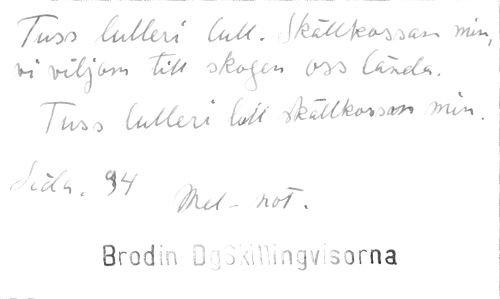 Tuss lulleri lull. Skällkossan min,
vi viljom till skogen oss lända.
Tuss lulleri lull skällkossan min.
Sida. 94
Mel- not.
Brodin DgSkillingvisorna